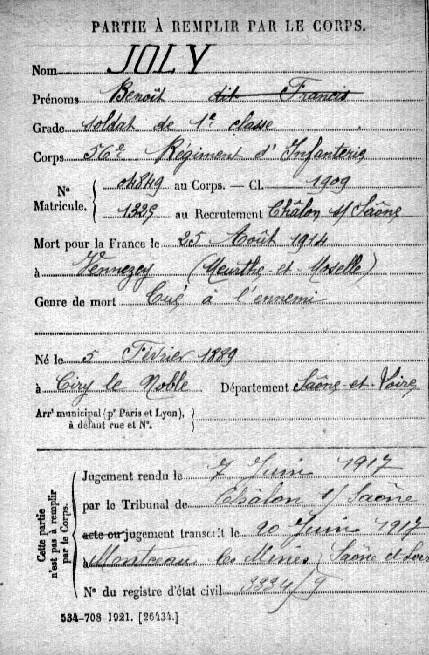 PARTIE À REMPLIR PAR LE CORPS.
Nom JOLY
Prénoms Benoit dit Francis
Grade soldat de 1e classe
Corps 56e Régiment d'Infanterie
N° Matricule. 04849 au Corps. — Cl. 1909
1225 au Recrutement Châlon s/ Saône
Mort pour la France le 25 Août 1914
à Vennezey (Meurthe-et-Moselle)
Genre de mort Tué à l'ennemi
Né le 5 Février 1889
à Ciry le Noble Département Saône-et-Loire
Arrt municipal (pr Paris et Lyon), à défaut rue et N°.
Cette partie n'est pas à remplir par le Corps.
Jugement rendu le 7 Juin 1917
par le Tribunal de Châlon s/ Saône
acte ou jugement transcrit le 20 Juin 1917
à Montceau les Mines (Saône et Loire
N° du registre d'état civil
534-708 1921. [26434.]